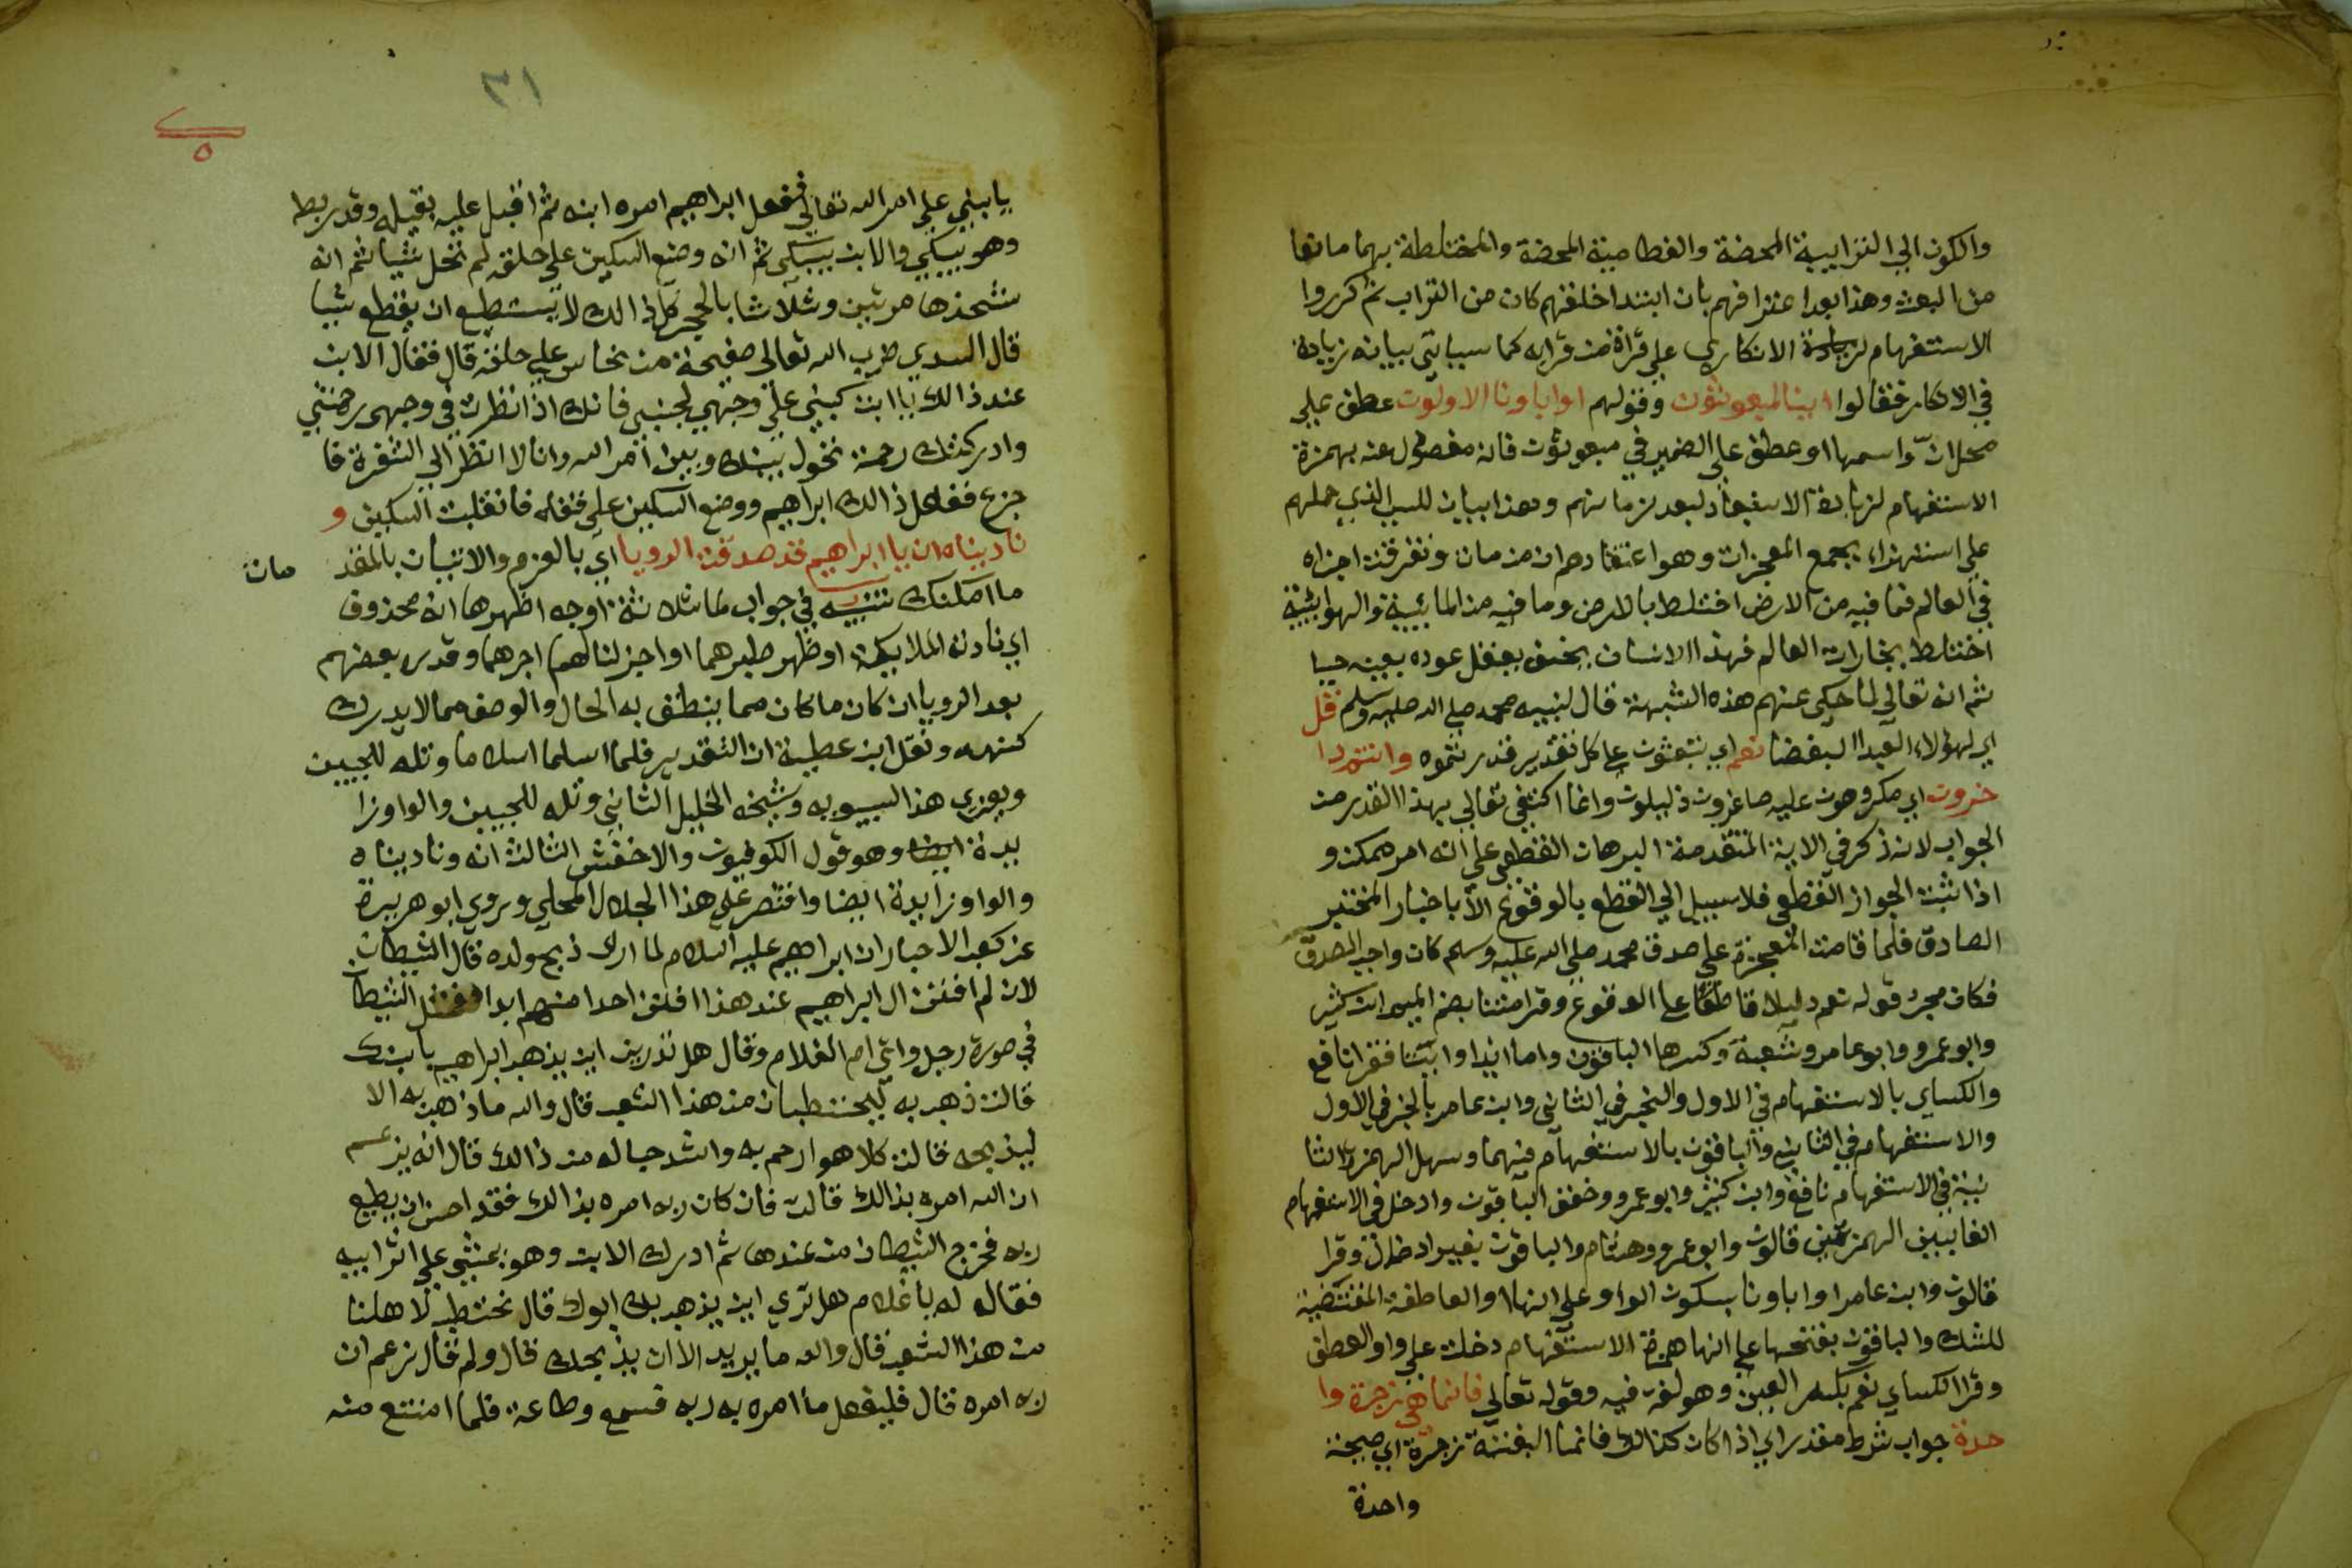 والكون الي الترابية المحضة والعظامية المحضة والمختلطة بهما مانعا
من البعث وهذا بعد اعترافهم بان ابتدا خلقهم كان من التراب ثم كرروا
الاستفهام لزيادة الانكاري علي قراة من قرا به كما سياتي بيانه زيادة
في الانكار فقالوا اينا لمبعوثون وقولهم اواباونا الاولون عطف علي
محل انّ واسمها اوعطف علي الضمير في مبعوثون فانه مفصول عنه بهمزة
الاستفهام لزيادة الاستبعاد لبعد زمانهم وهذا بيان للسبب الذي حملهم
علي استهزاء بجمع المعجزات وهو اعتقادهم ان من مات وتفرقت اجزاه
في العالم فما فيه من الارض اختلط بالارض وما فيه من المائية والهوائية
اختلط بخارات العالم فهذا الانسان كيف يعقل عوده بعينه حيا
ثم انه تعالي لما حكي عنهم هذه الشبهة قال لنبيه محمد صلي الله عليه وسلم قل
اي لهؤلاء البعدا البغضا نعم اي تبعثون علي كل تقدير قدرتموه وانتم دا
خرون اي مكروهون عليه صاغرون ذليلون وانما اكتفي تعالي بهذا القدر من
الجواب لانه ذكر في الاية المتقدمة البرهان القطعي علي انه امر ممكن و
اذا ثبت الجواز القطعي فلا سبيل الي القطع بالوقوع الا باخبار المخبر
الصادق فلما قامت المعجزة علي صدق محمد صلي الله عليه وسلم كان واجب الصدق
فكان مجرد قوله نعم دليلا قاطعا علي الوقوع وقرا متنا بضم الميم ابن كثير
وابو عمرو وابو عامر وشعبة وكسرها الباقون واما ايذا واينا فقرا نافع
والكساي بالاستفهام في الاول والخبر في الثاني وابن عامر بالخبر في الاول
والاستفهام في الثاني والباقون بالاستفهام فيهما وسهل الهمزة الثا
نية في الاستفهام نافع وابن كثير وابو عمرو وخفف الباقون وادخل في الاستفهام
الفا بين الهمزتين قالون وابو عمرو وهشام والباقون بغير ادخال وقرا
قالون وابن عامر اواباونا بسكون الواو علي انها او العاطفة المقتضية
للشك والباقون بفتحها علي انها همزة الاستفهام دخلت علي واو العطف
وقرا الكساي نعم بكسر العين وهو لغة فيه وقوله تعالي فانما هي زجرة وا
حدة جواب شرط مقدر اي اذا كان كذلك فانما البعثة زجرة اي صيحة
واحدة
٣١
يا بني علي امر الله تعالي ففعل ابراهيم امره ابنه ثم اقبل عليه يقبله وقد ربط
وهو يبكي والابن يبكي ثم انه وضع السكين علي حلقه لم تحل شيا ثم انه
شحذها مرتين وثلاثا بالحجر كل ذالك لا يستطيع ان يقطع شيا
قال السدي ضرب الله تعالي صفيحة من نحاس علي حلقه قال فقال الابن
عند ذالك يا ابت كبني علي وجهي لجنبي فانك اذا نظرت في وجهي رحمتني
وادركتك رحمة تحول بينك وبين امر الله وانا لا انظر الي الشفرة فا
جزع ففعل ذالك ابراهيم ووضع السكين علي قفاه فانقلبت السكين و
ناديناه ان يا ابراهيم قد صدقت الرويا اي بالعزم والاتيان بالمقد مات
ما امكنك تنبيه في جواب لما ثلاثة اوجه اظهرها انه محذوف
اي نادته الملايكة او ظهر صبرهما او اجزلنا لهما اجرهما وقدره بعضهم
بعد الرويا ان كان ما كان مما ينطق به الحال والوصف مما لا يدرك
كنهه ونقل ابن عطية ان التقدير فلما اسلما اسلاما وتله للجبين
ويعزي هذا لسيبويه وشيخه الخليل الثاني وتله للجبين والواو زا
يدة ايضا وهو قول الكوفيون والاخفش الثالث انه وناديناه
والواو زايدة ايضا واقتصر علي هذا الجلال المحلي وروي ابو هريرة
عن كعب الاحبار ان ابراهيم عليه السلام لما اراد ذبح ولده قال الشيطان
لان لم افتن ال ابراهيم عند هذا افلتن احدا منهم ابدا فتمثل الشيطان
في صورة رجل واتي ام الغلام وقال هل تدرين اين يذهب ابراهيم بابنك
قالت ذهب به ليحتطبان من هذا الشعب قال والله ما ذهب به الا
ليذبحه قالت كلا هو ارحم به واشد حبا له من ذالك قال انه يزعم
ان الله امره بذالك قالت فان كان ربه امره بذالك فقد احسن ان يطيع
ربه فخرج الشيطان من عندها ثم ادرك الابن وهو يمشي علي اثر ابيه
فقال له يا غلام هل تدري اين يذهب بك ابوك قال نحتطب لاهلنا
من هذا الشعب قال والله ما يريد الا ان يذبحك قال ولم قال زعم ان
ربه امره قال فليفعل ما امره به ربه فسمع وطاعة فلما امتنع منه